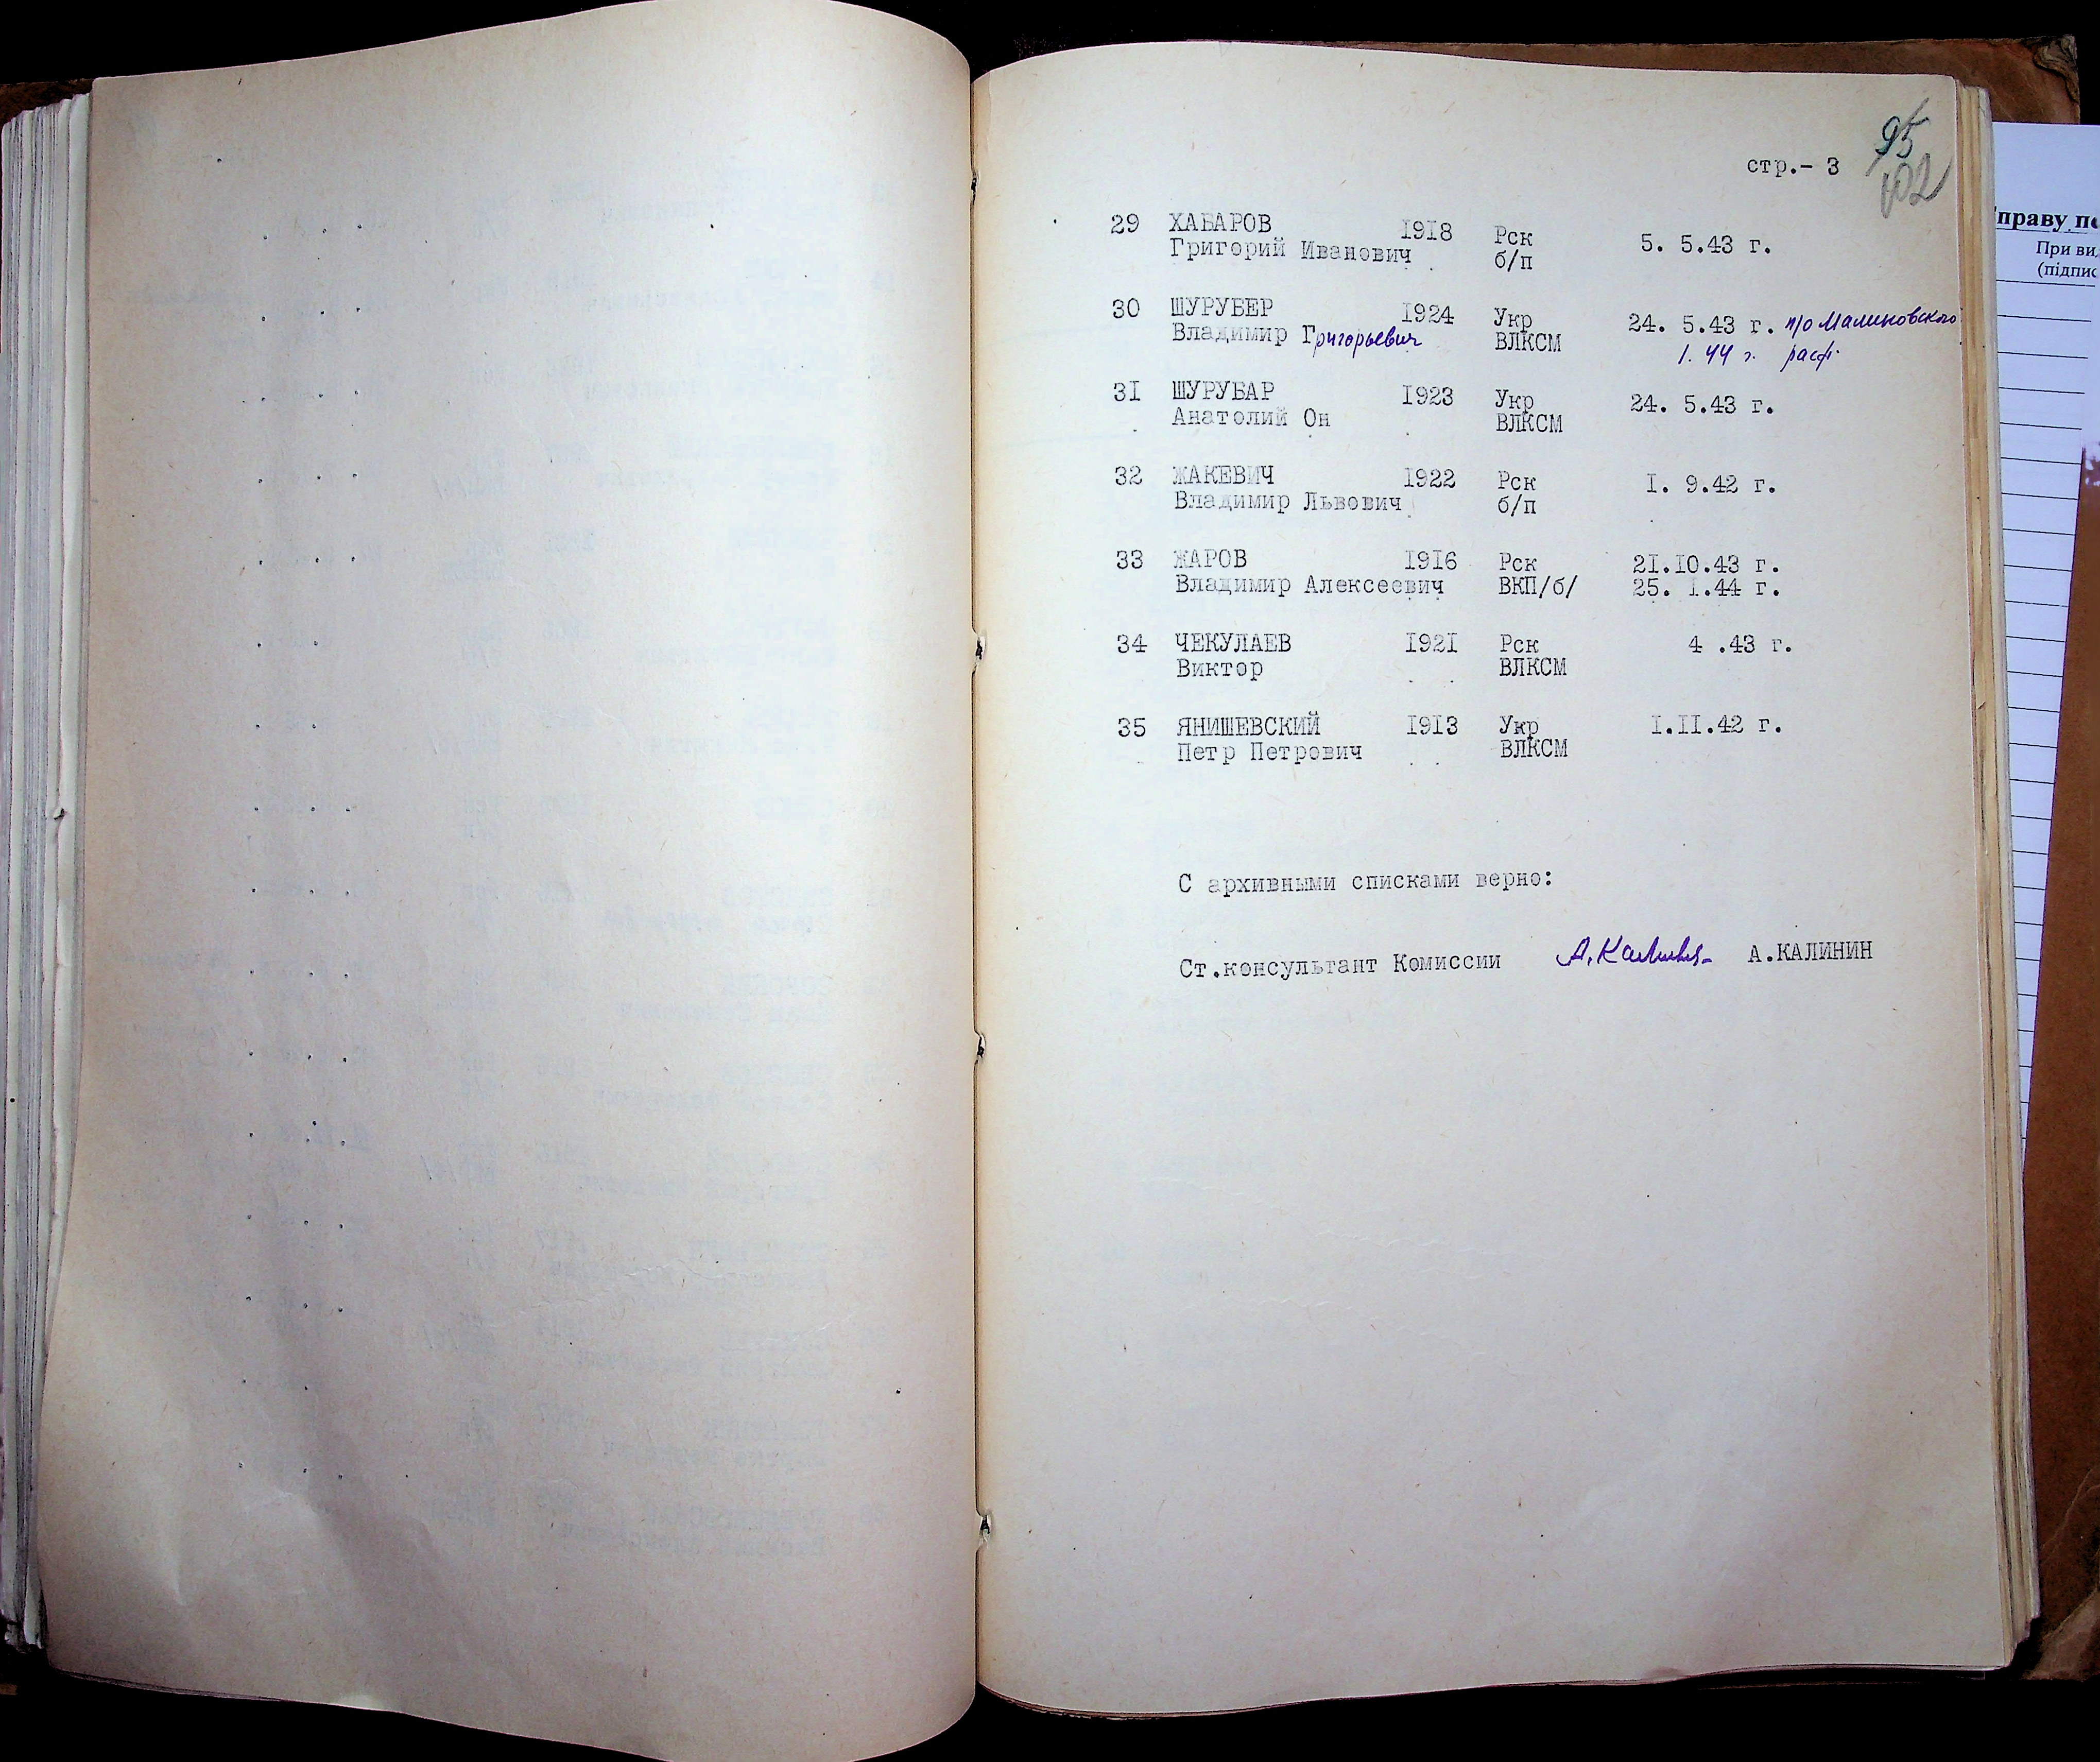 95
стр.- 3
102
29 ХАБАРОВ 1918 Рск 5. 5.43 г.
Григорий Иванович б/п
30 ШУРУБЕР 1924 Укр 24. 5.43 г. п/о Малиновского
Владимир Григорьевич ВЛКСМ 1. 44 г. расф.
31 ШУРУБАР 1923 Укр 24. 5.43 г.
Анатолий Он ВЛКСМ
32 ЖАКЕВИЧ 1922 Рск 1. 9.42 г.
Владимир Львович б/п
33 ЖАРОВ 1916 Рск 21.10.43 г.
Владимир Алексеевич ВКП/б/ 25. 1.44 г.
34 ЧЕКУЛАЕВ 1921 Рск 4 .43 г.
Виктор ВЛКСМ
35 ЯНИШЕВСКИЙ 1913 Укр 1.11.42 г.
Петр Петрович ВЛКСМ
С архивными списками верно:
Ст.консультант Комиссии А.Калинин А.КАЛИНИН
праву
При